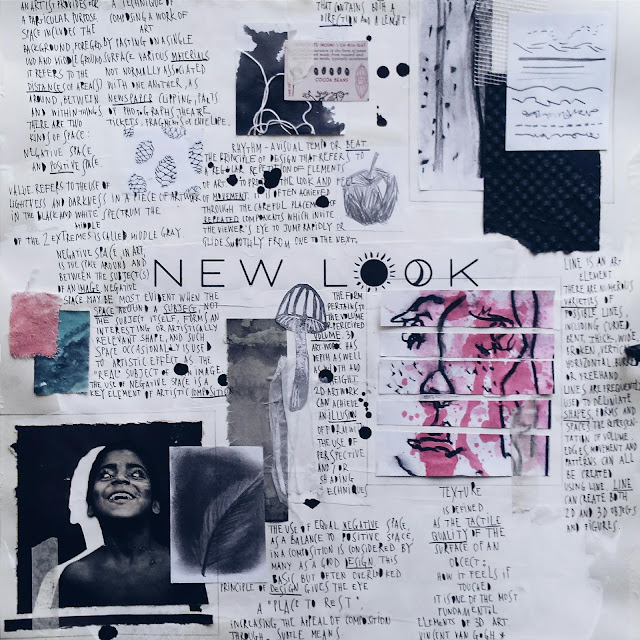 AN ARTIST PROVIDES FOR
A PARTICULAR PURPOSE
SPACE INCLUDES THE
BACKGROUND, FOREGRO
UND AND MIDDLE GROUND
IT REFERS TO THE
DISTANCES (OR AREAS)
AROUND, BETWEEN
AND WITHIN THINGS
THERE ARE TWO
KINDS OF SPACE:
NEGATIVE SPACE
AND POSITIVE SPACE.
A TECHNIQUE OF
COMPOSING A WORK OF
ART
BY PASTING ON A SINGLE
SURFACE VARIOUS MATERIALS
NOT NORMALLY ASSOCIATED
WITH ONE ANOTHER, AS
NEWSPAPER CLIPPING, PARTS
OF PHOTOGRAPHS THEATRE
TICKETS, FRAGMENTS OF ENVELOPE.
THAT CONTAINS BOTH A
DIRECTION AND A LENGHT
COCOA BEANS
RHYTHM - A VISUAL TEMPO OR BEAT.
THE PRINCIPLE OF DESIGN THAT REFERS TO
A REGULAR REPETITION OF ELEMENTS
OF ART TO THE LOOK AND FEE
OF MOVEMENT. IT IS OFTEN ACHIEVED
THROUGH THE CAREFUL PLACEMENT OF
REPEATED COMPONENTS WHICH INVITE
THE VIEWER'S EYE TO JUMP RAPIDLY OR
GLIDE SMOOTHLY FROM ONE TO THE NEXT.
VALUE REFERS TO THE USE OF
LIGHTNESS AND DARKNESS IN A PIECE OF ARTWORK
IN THE BLACK AND WHITE SPECTRUM THE
MIDDLE
OF THE 2 EXTREMES IS CALLED MIDDLE GRAY
NEW LOOK
NEGATIVE SPACE, IN ART,
IS THE SPACE AROUND AND
BETWEEN THE SUBJECT(S)
OF AN IMAGE NEGATIVE
SPACE MAY BE MOST EVIDENT WHEN THE
SPACE AROUND A SUBJECT, NOT
THE SUBJECT ITSELF, FORMS AN
INTERESTING OR ARTISTICALLY
RELEVANT SHAPE, AND SUCH
SPACE OCCASIONALLY IS USED
TO ARTISTIC EFFECT AS THE
"REAL" SUBJECT OF AN IMAGE
THE USE OF NEGATIVE SPACE IS A
KEY ELEMENT OF ARTISTIC COMPOSITION
THE FORM
PERTAINS TO
THE VOLUME
OR PERCEIVED
VOLUME. 3D
ARTWORK HAS
DEPTH AS WELL
AS WIDTH AND
HEIGHT.
2D ARTWORK
CAN ACHIEVE
AN ILLUSION
OF FORM WITH
THE USE OF
PERSPECTIVE
AND/OR
SHADING
TECHNIQUES
LINE IS AN ART
ELEMENT
THERE ARE NUMEROUS
VARIETIES OF
POSSIBLE LINES,
INCLUDING CURVED,
BENT, THICK, WIDE
BROKEN, VERTICAL
HORIZONTAL, BURRED
OR FREEHAND.
LINES ARE FREQUENTLY
USED TO DELINEATE
SHAPES, FORMS AND
SPACES THE REPRESEN-
TATION OF VOLUME
EDGES MOVEMENT AND
PATTERNS CAN ALL
BE CREATED
USING LINE LINE
CAN CREATE BOTH
2D AND 3D OBJECTS
AND FIGURES.
THE USE OF EQUAL NEGATIVE SPACE,
AS A BALANCE TO POSITIVE SPACE,
IN A COMPOSITION IS CONSIDERED BY
MANY AS A GOOD DESIGN THIS
BASIC BUT OFTEN OVERLOOKED
PRINCIPLE OF DESIGN GIVES THE EYE
A "PLACE TO REST"
INCREASING THE APPEAL OF COMPOSITION
THROUGH SUBTLE MEANS
TEXTURE
IS DEFINED
AS THE TACTILE
QUALITY OF THE
SURFACE OF AN
OBJECT:
HOW IT FEELS IF
TOUCHED
IT IS ONE OF THE MOST
FUNDAMENTAL
ELEMENTS OF 3D ART.
VINCENT VAN GOGH